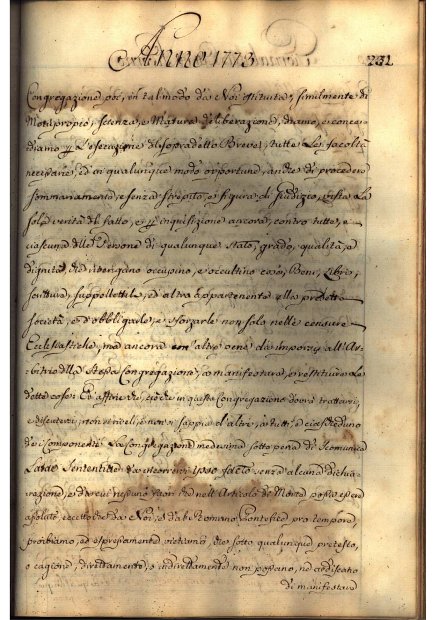 Anno 1773
231
Congregazione poi, in tal modo da Noi istituita, similmente di
Moto proprio, scienza, e Matura deliberazione, diamo, e conce-
diamo per l'esecuzione di sopradetto Breve, tutte le facoltà
necessarie, ed in qualunque modo opportune, anche di procedere
sommariamente, e senza strepito, e figura di Giudizio, vista la
sola verità del fatto, e per inquisizione ancora, contro tutte, e
ciascuna delle Persone di qualunque stato, grado, qualità, e
dignità, che ritengano occupino, e occultino Beni, Libri,
scritture, suppellettili, ed altro appartenente alla predetta
società, e d'obbligarle, e sforzarle non solo nelle censure
Ecclesiastiche, ma ancora con altre pene da imporsi all'Ar-
bitrio della stessa Congregazione, a manifestare, e restituire le
dette cose: Ed affinché, ciò che in questa Congregazione dovrà trattarsi,
e discutersi, non si riveli, e non si sappia d'altri, a tutti, e a ciascheduno
dei componenti la Congregazione medesima sotto pena di scomunica
Latae Sententiae da incorrersi ipso facto senza alcuna dichia-
razione, e da cui nessuno fuori che nell'Articolo di Morte possa essere
assoluto, eccetto che da Noi, e dal Romano Pontefice pro tempore,
proibiamo, ed espressamente vietiamo, che sotto qualunque pretesto,
o cagione, direttamente, o indirettamente non possino, ne ardiscano
di manifestare